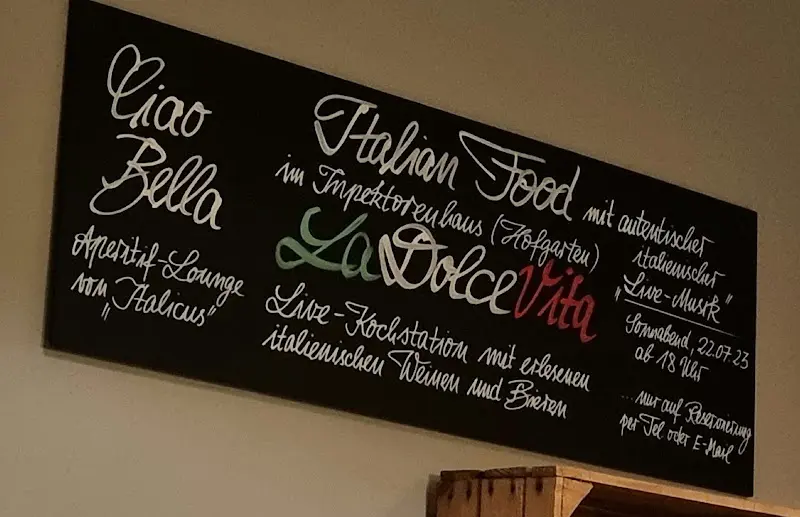 Ciao
Bella
Aperitif-Lounge
von „Italicus"
Italian Food
im Inpektorenhaus (Hofgarten)
La Dolce Vita
Live-Kochstation mit erlesenen
italienischen Weinen und Bieren
mit autentischer
italienischer
„Live-Musik"
Sonnabend, 22.07.23
ab 18 Uhr
...nur auf Reservierung
per Tel oder E-Mail